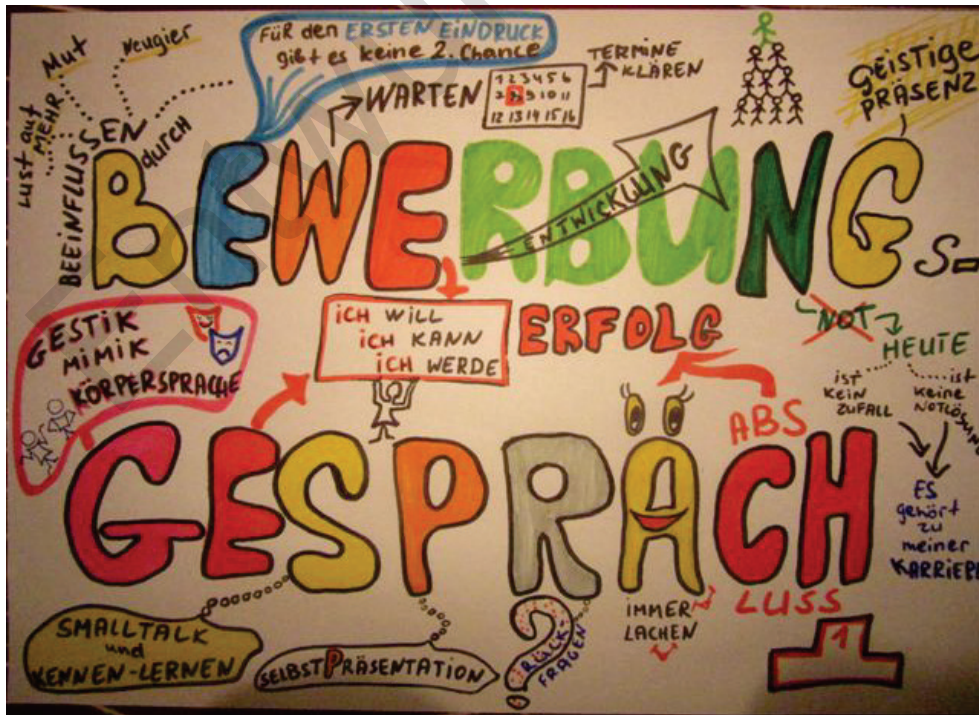 Mut
Neugier
Lust auf
MEHR
BEEINFLUSSEN
durch
FÜR den ERSTEN EINDRUCK
gibt es keine 2. Chance
WARTEN
1 2 3 4 5 6
7 8 9 10 11
12 13 14 15 16
TERMINE
KLÄREN
GEISTIGE
PRÄSENZ
BEWERBUNGS-
ENTWICKLUNG
GESTIK
MIMIK
KÖRPERSPRACHE
ICH WILL
ICH KANN
ICH WERDE
ERFOLG
NOT
HEUTE
ist
KEIN
ZUFALL
ist
keine
NOTLÖSUNG
ES
gehört
zu
meiner
KARRIERE
GESPRÄCH
ABS
LUSS
SMALLTALK
und
KENNEN-LERNEN
SELBSTPRÄSENTATION
RÜCK-
FRAGEN
IMMER
LACHEN
1